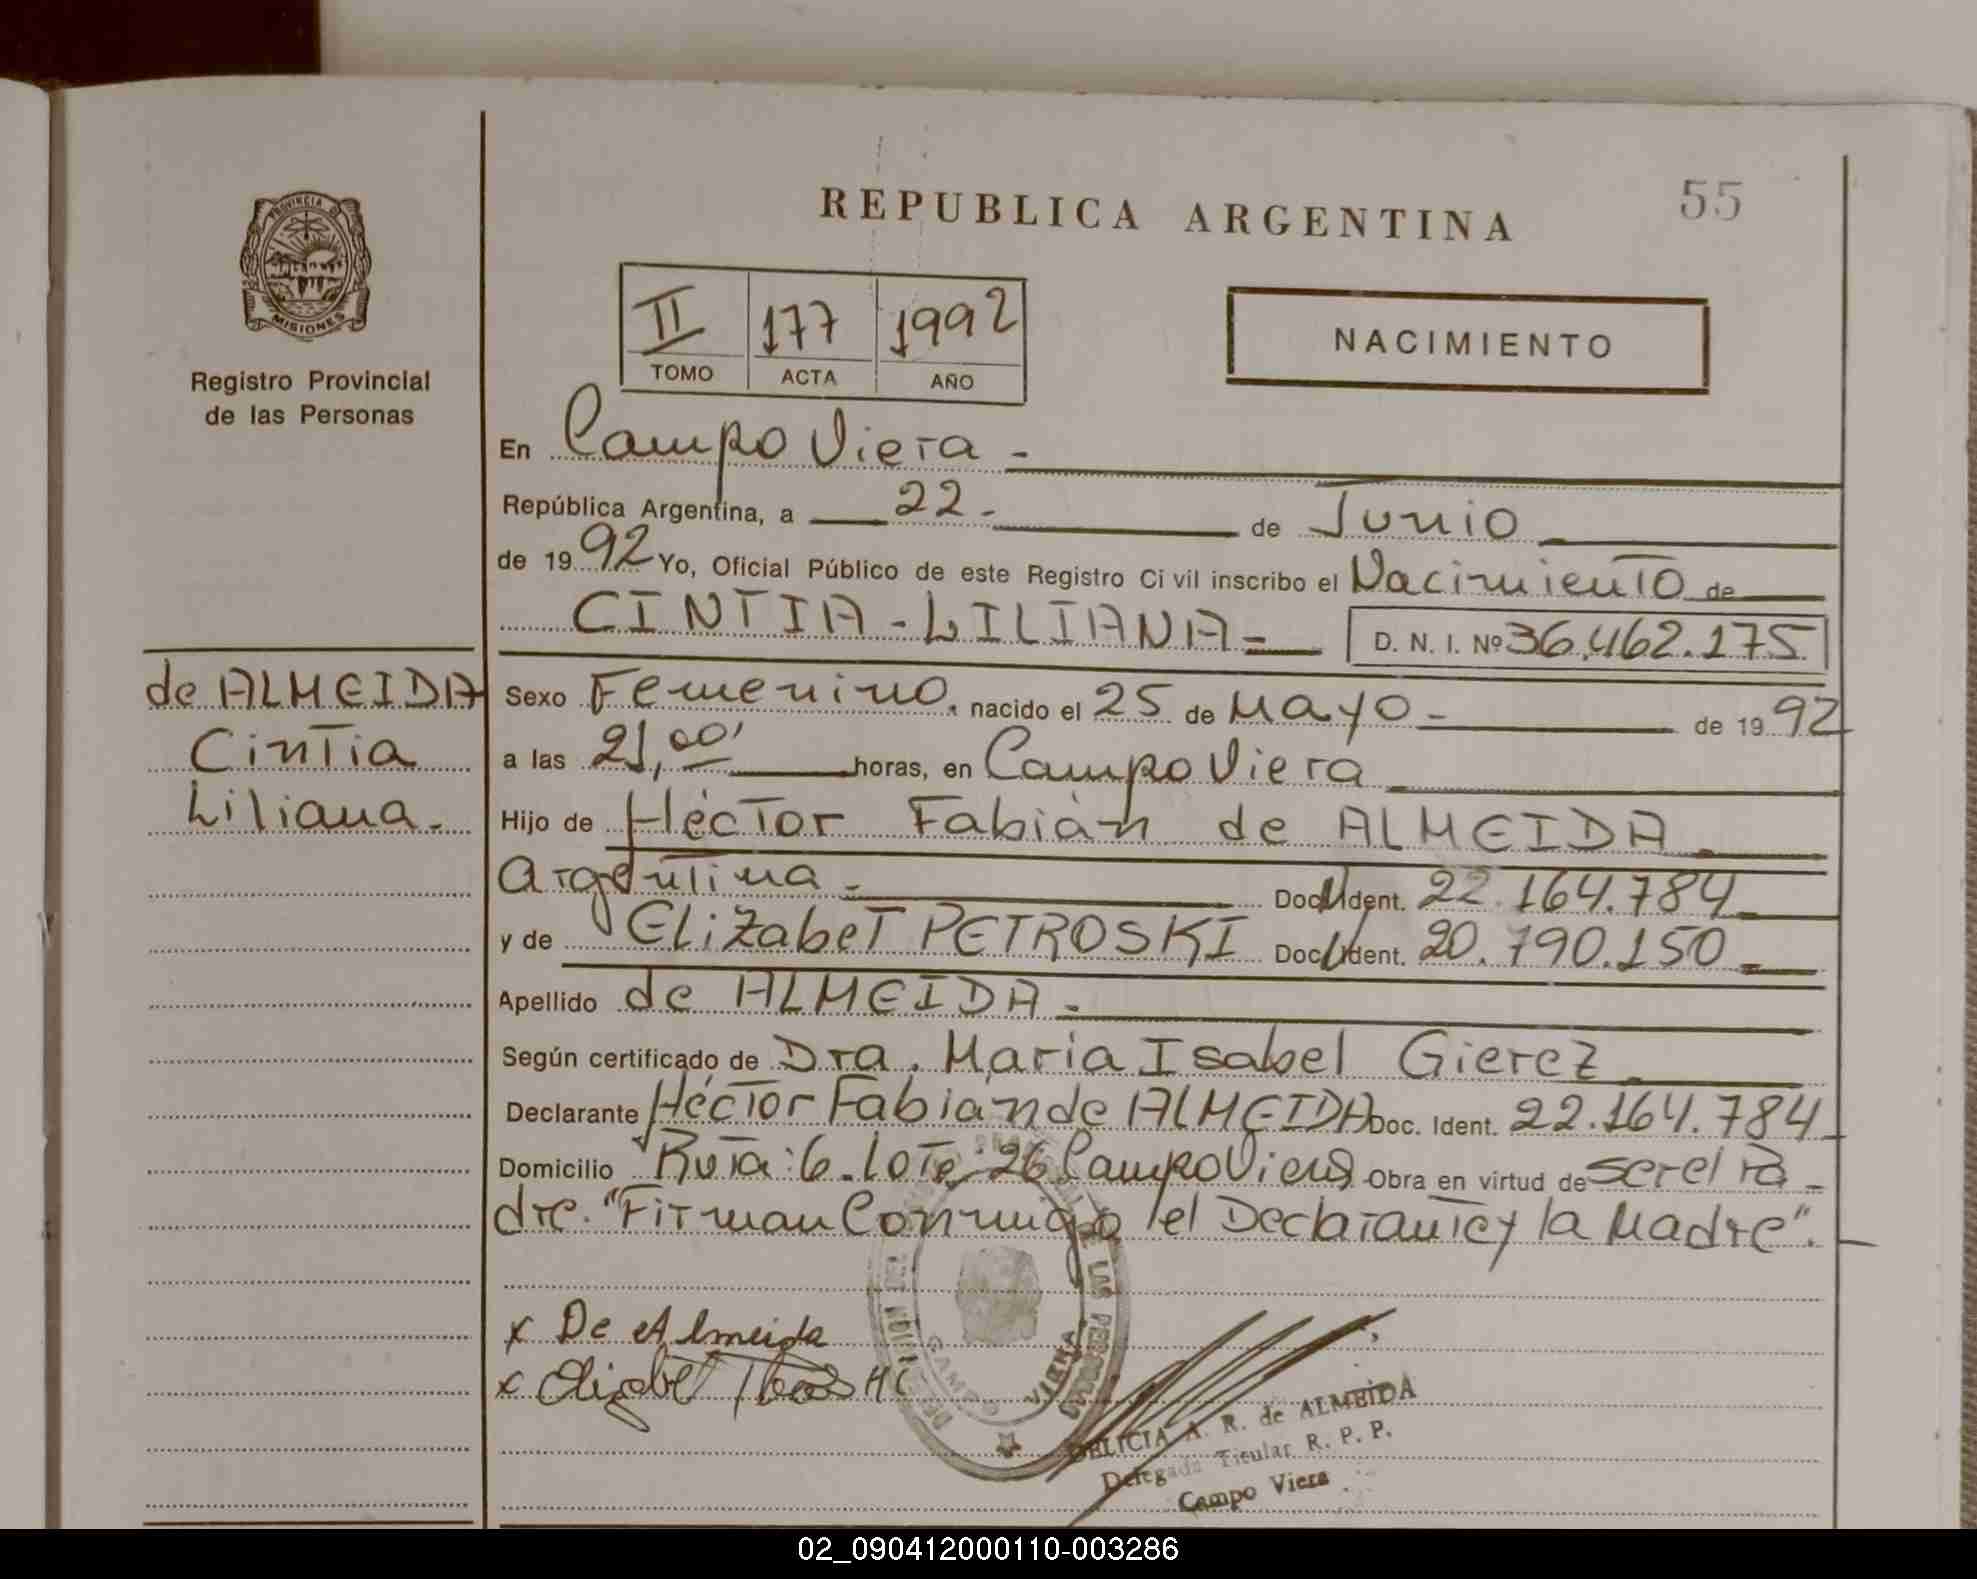 55
REPUBLICA ARGENTINA
PROVINCIA DE
MISIONES
Registro Provincial
de las Personas
II 177 1992
TOMO ACTA AÑO
NACIMIENTO
En Campo Viera -
República Argentina, a 22- de Junio
de 1992 Yo, Oficial Público de este Registro Civil inscribo el Nacimiento de
CINTIA-LILIANA= D. N. I. Nº 36.462.175
de ALMEIDA
Cintia
Liliana.-
Sexo Femenino. nacido el 25 de Mayo - de 1992
a las 21,00' horas, en Campo Viera
Hijo de Héctor Fabián de ALMEIDA
Argentina.- Doc. Ident. 22.164.784
y de Elizabet PETROSKI Doc. Ident. 20.790.150
Apellido de ALMEIDA.-
Según certificado de Dra. Maria Isabel Gierez
Declarante Héctor Fabian de ALMEIDA Doc. Ident. 22.164.784
Domicilio Ruta:6-Lote:26 Campo Viera Obra en virtud de ser el Pa-
dre. "Firman Conmigo el Declarante y la Madre".-
x De Almeida
x Elizabet
CAMPO VIERA
DELICIA A. R. de ALMEIDA
Delegada Titular R. P. P.
Campo Viera
02_090412000110-003286